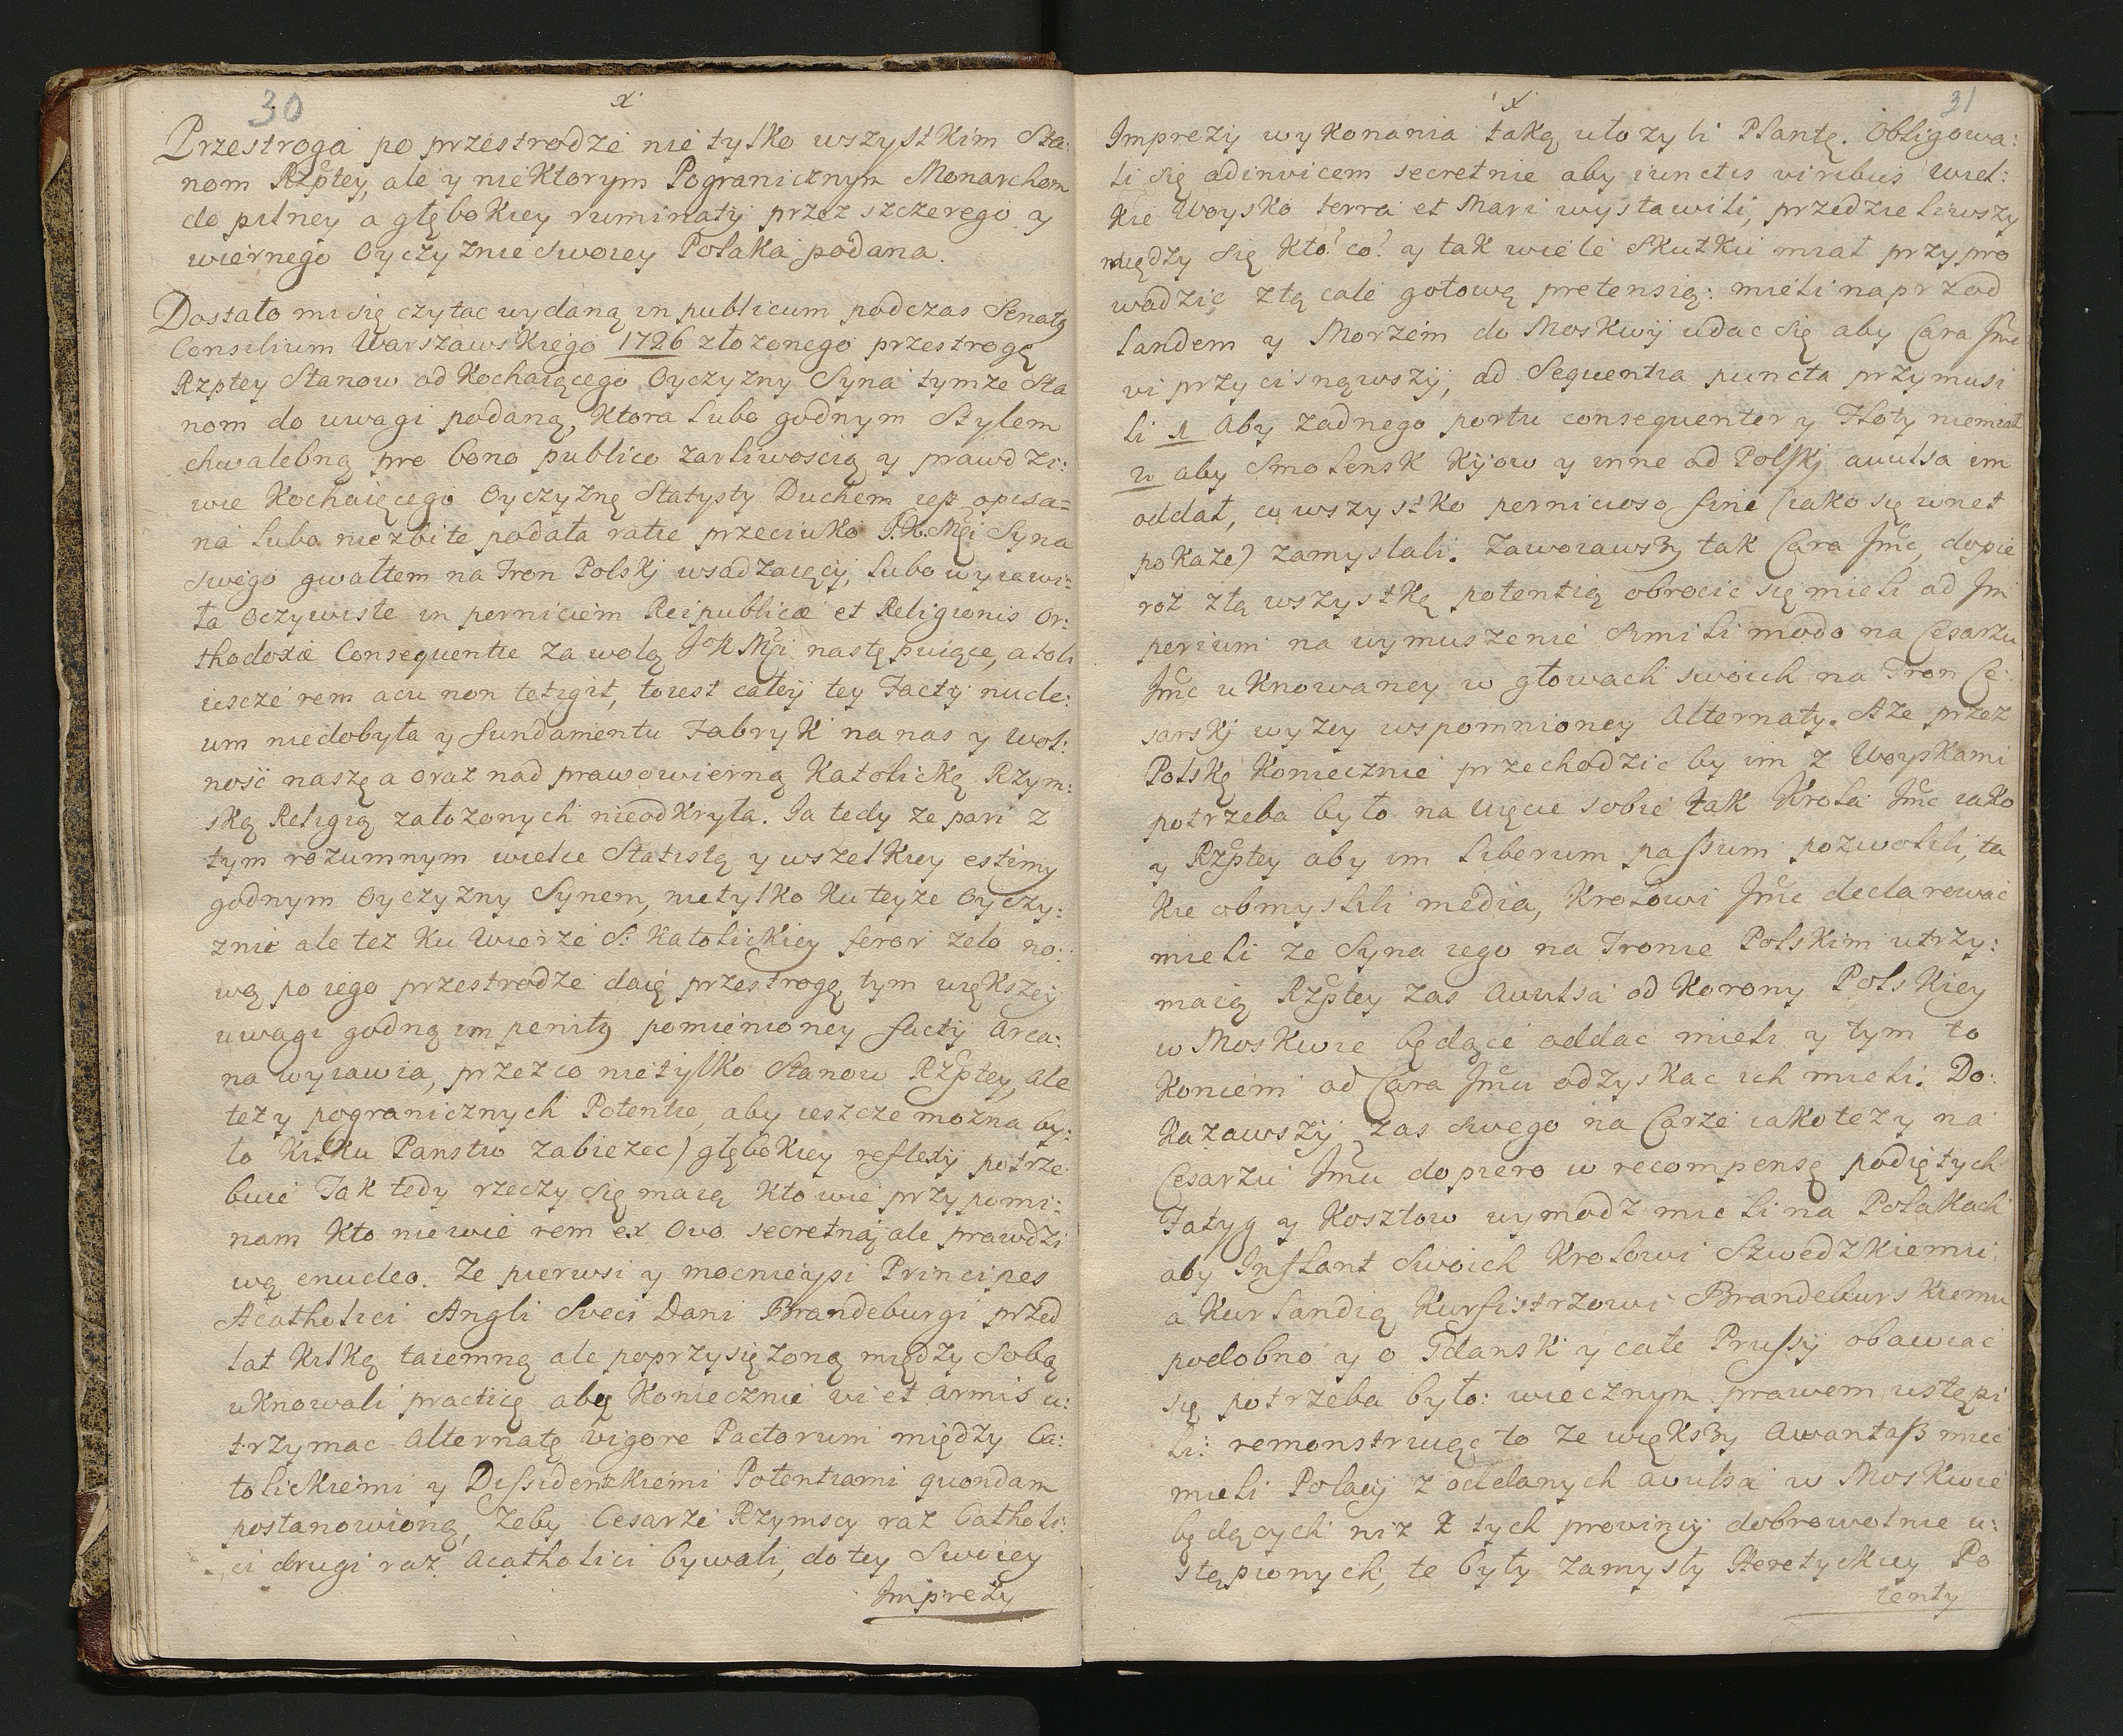 30
x
Przestroga po przestrodze nie tylko wszystkim Sta:
nom Rzptey, ale y niektorym Pogranicznym Monarchom
do pilney a głębokiey ruminaty przez szczerego y
wiernego Oyczyznie swoiey Polaka podana.
Dostało mi się czytac wydaną in publicum podczas Senatg
Consilium Warszawskiego 1726 złozonego przestrogę
Rzptey Stanow od Kochaiącego Oyczyzny Syna tymze Sta
nom do uwagi podaną, Ktora lubo godnym Stylem
chwalebną pro bono publico zarliwoscią y prawdzi:
wie Kochaięcego Oyczyznę Statysty Duchem iest opisa=
na lubo niezbite podała ratie przeciwko Mći Syna
swego gwałtem na Tron Polskj wsadzaięcÿ, lubo wyiawi:
ła Oczywiste in perniciem Reipublicæ et Religionis Or:
thodoxiæ Consequentie za wolą JoK Mći następuiące, atoli
iescze rem acu non tetigit, toiest całeÿ tey Factÿ nude:
um niedobyła y fundamentu Fabryk na nas y wol:
ność naszę a oraz nad prawowierną Katolickę Rzym:
skę Religię załozonych nieodkryła. Ja tedy ze pari z
tym rozumnym wielie Statistą y wszelkiey estimy
godnym Oyczyzny Synem, nietylko Ku teyze Oyczy:
znie ale tez Ku Wierze S: Katolickiey feror zelo no:
wą po iego przestrodze daię przestrogę tym większeÿ
uwagi godną im penitg pomienioney factÿ Arca:
na wyiawia, przez co nietylko Stanow Rzptey, ale
tez y pogranicznych Potentie, aby ieszcze mozna by:
ło Kilku Panstw zabiezec) głębokiey reflexÿ potrze
buie Tak tedy rzeczy się maią Kto wie przypomi:
nam Kto niewie rem ex Ovo secretną ale prawdzi
wą enudeo. Ze pierwsi y mocnieysi Principes
Acatholici Angli Sveci Dani Brandeburgi przed
lat Kilką taiemną ale poprzysięzoną między Sobą
uknowali practicę aby Koniecznie vi et armis u:
trzymac Alternatę vigore Pactorum między Ca:
tolickiemi y Dissidenckiemi Potentiami quondam
postanowioną, zeby Cesarze Rzymscy raz Catholi:
ci drugi raz Acatholici bywali, do tey Swoiey
Imprezy
31
x
Imprezÿ wykonania taką ułozyli Plantę. Obligowa:
li się adinvicem secretnie aby iunctis viribus wiel:
Kie Woysko terra et Mari wystawili, przedzieliwszy
między się Kto? co? y tak wiele Skutku miał przypro
wadzic ztą cale gotową pretensią: mieli naprzod
landem y Morzem do Moskwÿ udac się aby Cara Jmć
vi przycisnąwszÿ, ad Sequentia puncta przymusi
li 1 Aby zadnego portu consequenter y Floty niemiał
2 aby Smolensk Kijow y inne od Polskj avulsa im
oddał, co wszystko pernicioso fine (iako się wnet
pokaze) zamyslali. Zawoiawszy tak Cara Jmć, dopie
roz ztą wszystkę potentią obrocic się mieli ad Im
perium na wymuszenie simili modo na Cesarzu
Jmć uknowaney w głowach swoich na Tron Ce:
sarskj wyzey wspomnioney Alternaty. Aze przez
Polskę Koniecznie przechodzic by im z Woyskami
potrzeba było na uięcie sobie tak Krola Jmć iako
y Rzptey aby im liberum passum pozwolili, ta
Kie obmyslili media, Krolowi Jmć declarować
mieli ze Syna iego na Tronie Polskim utrzy:
maią Rzptey zas Avulsa od Korony Polskiey
w Moskwie będące oddac mieli y tym to
Koniem od Cara Jmći odzyskac ich mieli. Do:
Kazawszÿ zas swego na Carze iakotezy na
Cesarzu Jmći dopiero w recompensę podiętych
Fatyg y Kosztow wymodz mieli na Polakach
aby Inflant Swoich Krolowi Szwedzkiemu
a Kurlandią Kurfistrzowi Brandeburskiemu
podobno y o Gdansk y całe Prussÿ obawiac
się potrzeba było: wiecznym prawem ustępi
li: remonstruięc to ze większy Awantass miec
mieli Polacÿ z oddanych avulsa w Moskwie
będących niz z tych provincÿ dobrowolnie u:
stępionych, te były zamysły Heretyckiey Po
tenty